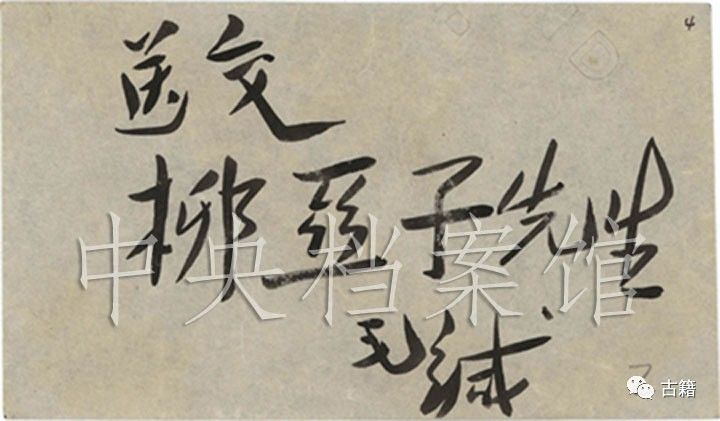 4
送交
柳亚子先生
毛缄
中央档案馆
古籍